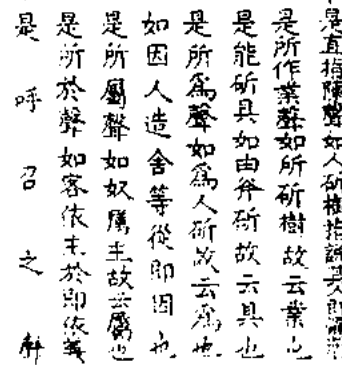 是直指陳聲如人斫樹指說其人即
是所作業聲如所斫樹故云業也
是能斫具如由斧斫故云具也
是所爲聲如爲人斫故云爲也
如因人造舍等從即因也
是所屬聲如奴屬主故云屬也
是所於聲如客依主於即依義
是呼召之